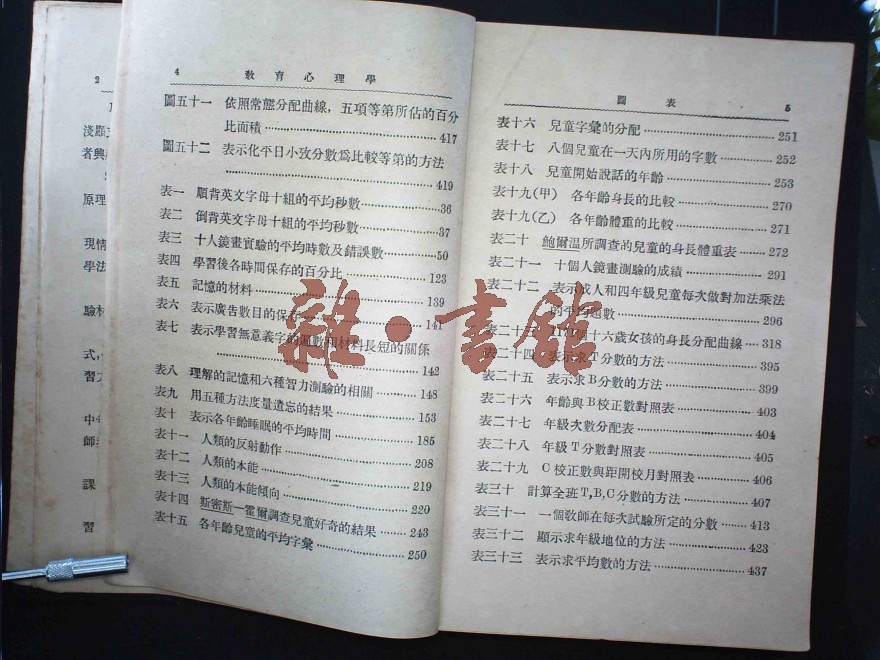 2
淺顯
者興
原理
現情
學法
驗材
式,
習
中
師
課
習
4 教育心理學
圖五十一 依照常態分配曲線,五項等第所佔的百分
比面積……417
圖五十二 表示化平日小攷分數爲比較等第的方法
……419
表一 順背英文字母十組的平均秒數……36
表二 倒背英文字母十組的平均秒數……37
表三 十人鏡畫實驗的平均時數及錯誤數……50
表四 學習後各時間保存的百分比……123
表五 記憶的材料……139
表六 表示廣告數目的保存……141
表七 表示學習無意義字的遍數和材料長短的關係
……142
表八 理解的記憶和六種智力測驗的相關……148
表九 用五種方法度量遺忘的結果……153
表十 表示各年齡睡眠的平均時間……185
表十一 人類的反射動作……208
表十二 人類的本能……219
表十三 人類的本能傾向……220
表十四 斯密斯—霍爾調查兒童好奇的結果……243
表十五 各年齡兒童的平均字彙……250
圖表 5
表十六 兒童字彙的分配……251
表十七 八個兒童在一天內所用的字數……252
表十八 兒童開始說話的年齡……253
表十九(甲) 各年齡身長的比較……270
表十九(乙) 各年齡體重的比較……271
表二十 鮑爾溫所調查的兒童的身長體重表……272
表二十一 十個人鏡畫測驗的成績……291
表二十二 表示成人和四年級兒童每次做對加法乘法
的平均題數……296
表二十三 1171個十六歲女孩的身長分配曲線……318
表二十四 表示求T分數的方法……395
表二十五 表示求B分數的方法……399
表二十六 年齡與B校正數對照表……403
表二十七 年級次數分配表……404
表二十八 年級T分數對照表……405
表二十九 C校正數與距開校月對照表……406
表三十 計算全班T,B,C分數的方法……407
表三十一 一個教師在每次試驗所定的分數……413
表三十二 顯示求年級地位的方法……423
表三十三 表示求平均數的方法……437
雜·書館